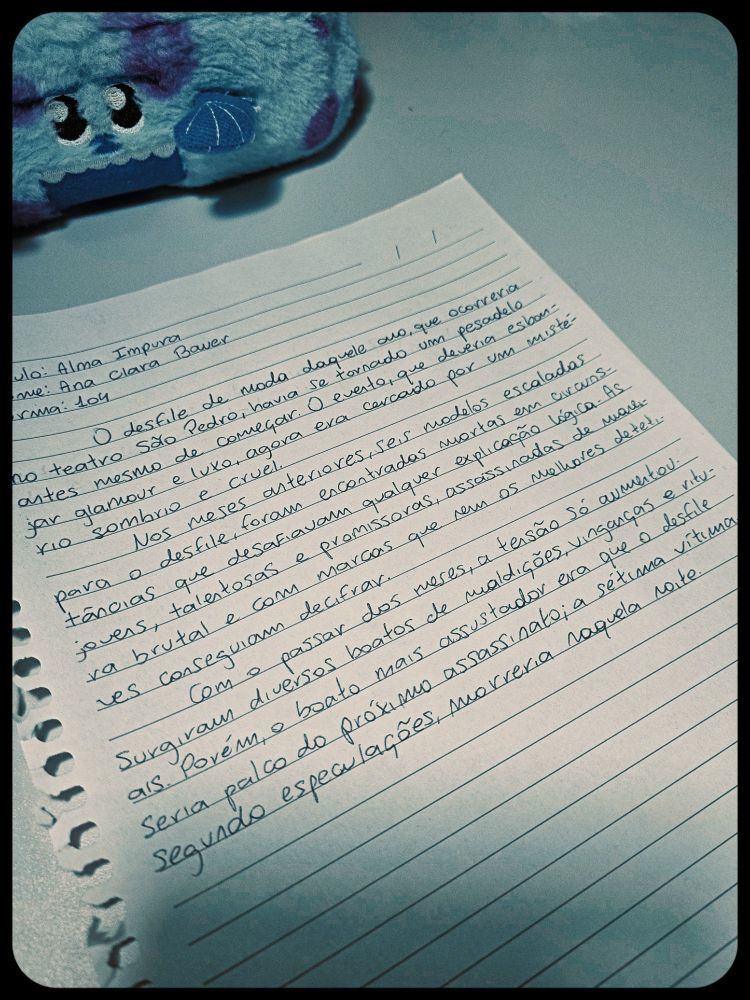 ulo: Alma Impura
me: Ana Clara Bauer
rma: 104
O desfile de moda daquele ano, que ocorreria
no teatro São Pedro, havia se tornado um pesadelo
antes mesmo de começar. O evento, que deveria esban-
jar glamour e luxo, agora era cercado por um misté-
rio sombrio e cruel.
Nos meses anteriores, seis modelos escaladas
para o desfile, foram encontradas mortas em circuns-
tâncias que desafiavam qualquer explicação lógica. As
jovens, talentosas e promissoras, assassinadas de manei-
ra brutal e com marcas que nem os melhores deteti-
ves conseguiam decifrar.
Com o passar dos meses, a tensão só aumentou.
Surgiram diversos boatos de maldições, vinganças e ritu-
ais. Porém, o boato mais assustador era que o desfile
seria palco do próximo assassinato; a sétima vítima
segundo especulações, morreria naquela noite.